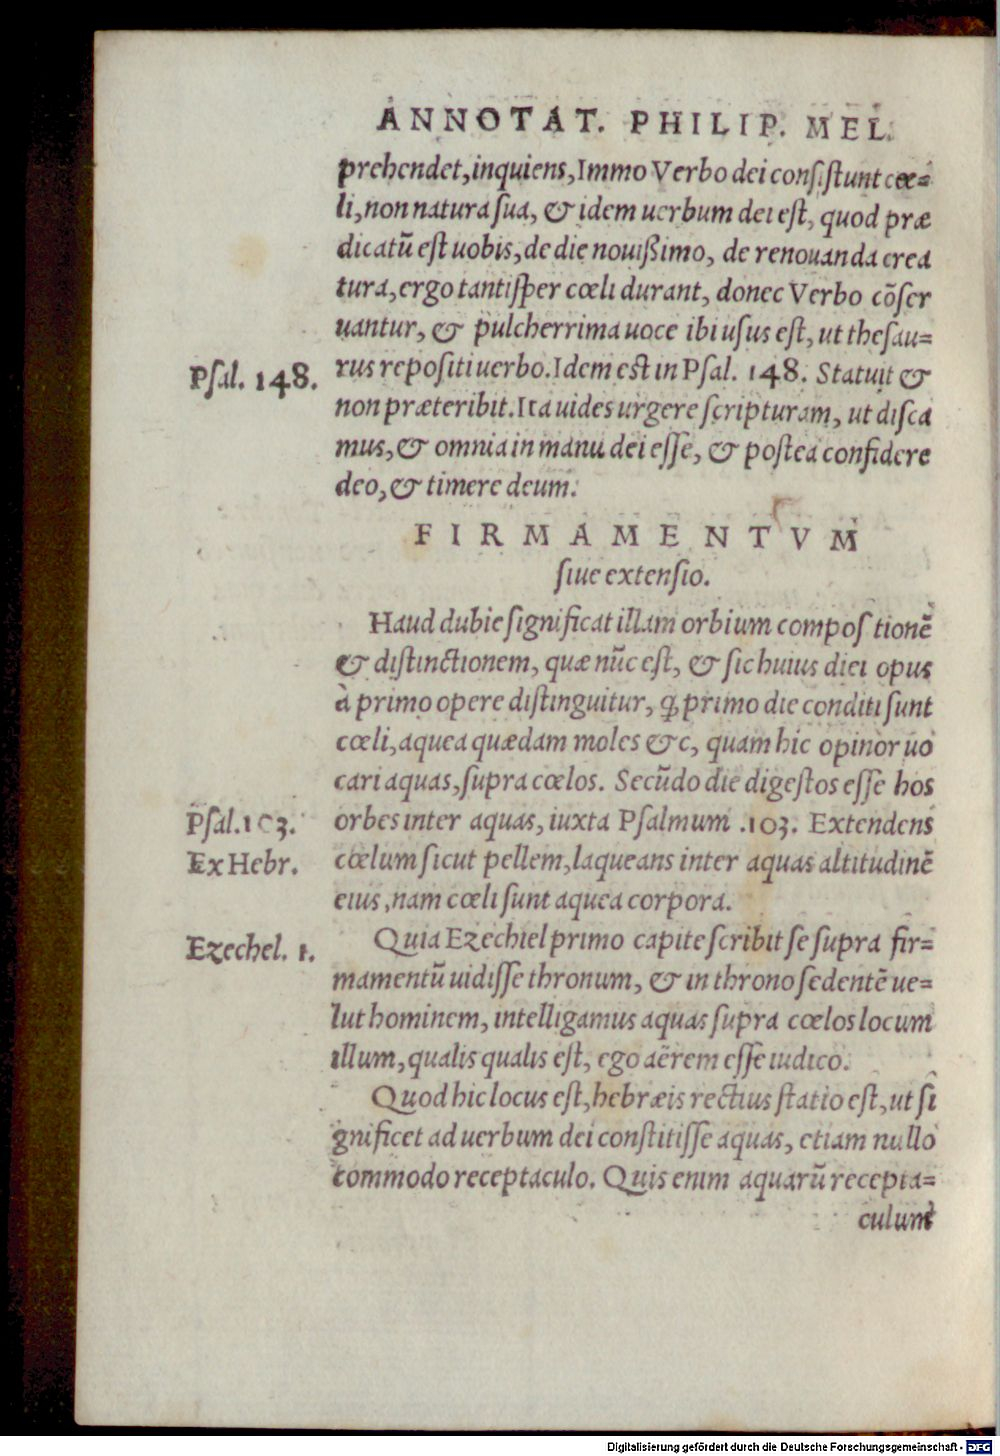 ANNOTAT. PHILIP. MEL.
prehendet, inquiens, Immo Verbo dei consistunt cœ=
li, non natura sua, & idem uerbum dei est, quod præ
dicatū est uobis, de die nouißimo, de renouanda crea
tura, ergo tantisper cœli durant, donec Verbo cōser
uantur, & pulcherrima uoce ibi usus est, ut thesau=
Psal. 148. rus repositi uerbo. Idem est in Psal. 148. Statuit &
non præteribit. Ita uides urgere scripturam, ut disca
mus, & omnia in manu dei esse, & postea confidere
deo, & timere deum.
FIRMAMENTVM
siue extensio.
Haud dubie significat illam orbium compositionē
& distinctionem, quæ nūc est, & sic huius diei opus
à primo opere distinguitur, ꝙ primo die conditi sunt
cœli, aquea quædam moles &c, quam hic opinor uo
cari aquas, supra cœlos. Secūdo die digestos esse hos
Psal. 103. orbes inter aquas, iuxta Psalmum .103. Extendens
Ex Hebr. cœlum sicut pellem, laqueans inter aquas altitudinē
eius, nam cœli sunt aquea corpora.
Ezechel. 1. Quia Ezechiel primo capite scribit se supra fir=
mamentū uidisse thronum, & in throno sedentē ue=
lut hominem, intelligamus aquas supra cœlos locum
illum, qualis qualis est, ego aërem esse iudico.
Quod hic locus est, hebræis rectius statio est, ut si
gnificet ad uerbum dei constitisse aquas, etiam nullo
commodo receptaculo. Quis enim aquarū recepta=
culum
Digitalisierung gefördert durch die Deutsche Forschungsgemeinschaft - DFG